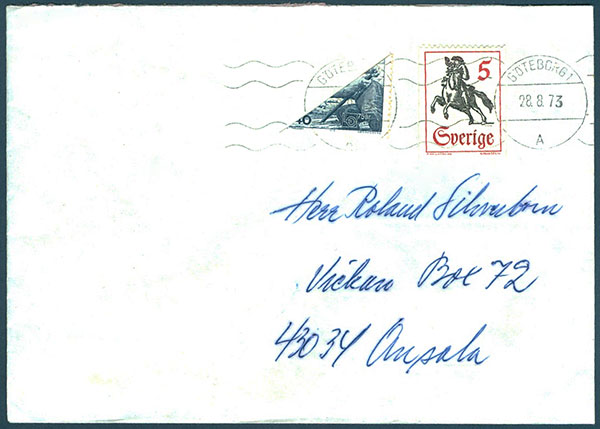 GÖTEB
40
5
Sverige
GÖTEBORG 1
28.8.73
A
Herr Roland Silverborn
Vickan Box 72
43034 Onsala